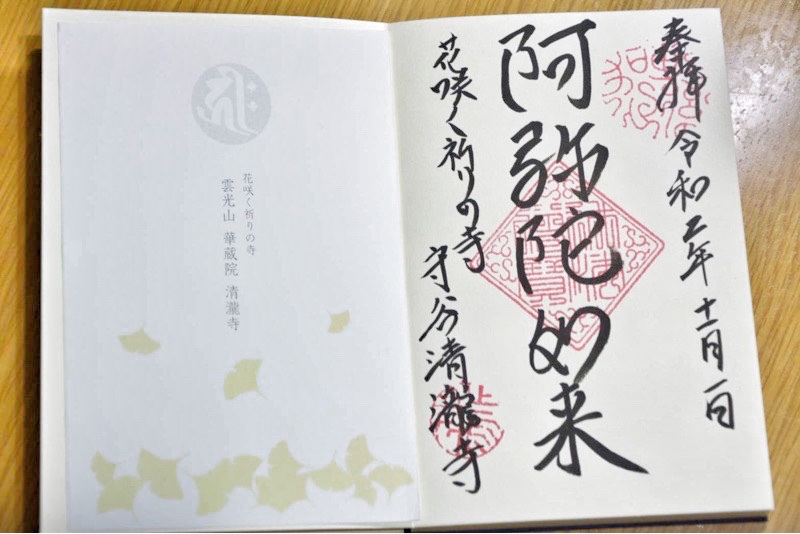 奉拝 令和二年 十一月一日
阿弥陀如来
花咲く祈りの寺 守谷清瀧寺
花咲く祈りの寺
雲光山 華蔵院 清瀧寺